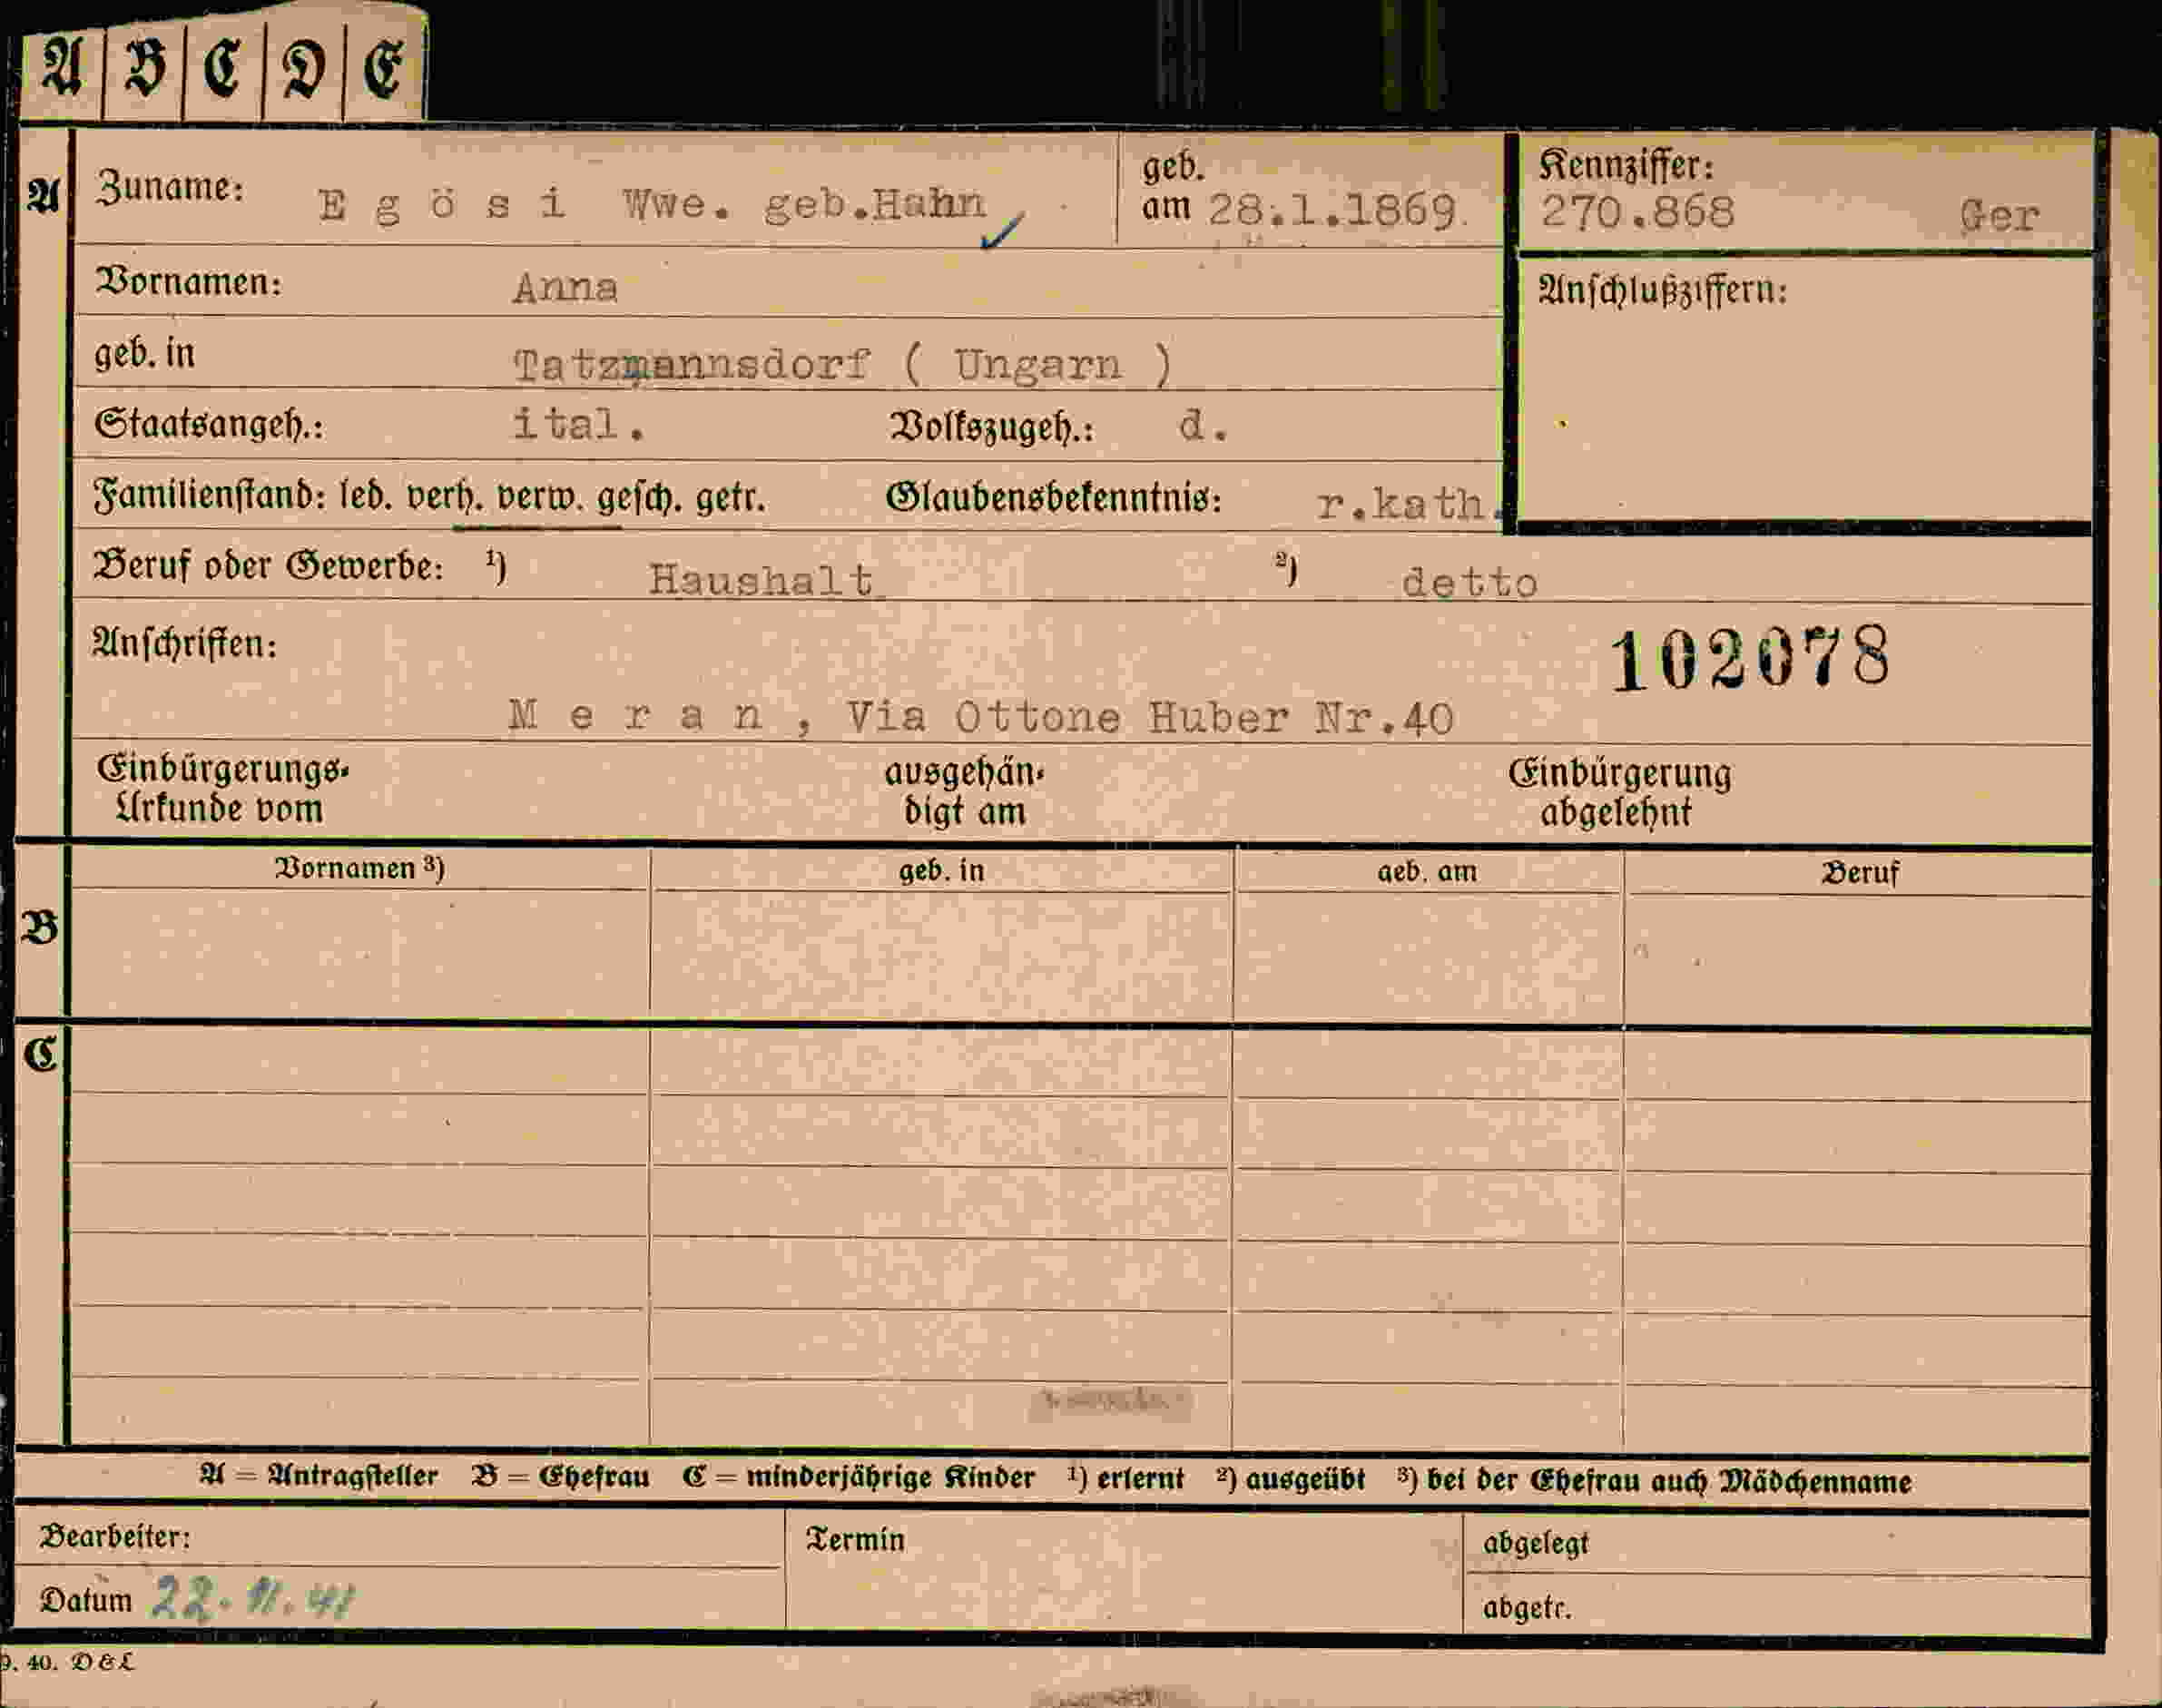 A B C D E
A Zuname: E g ö s i Wwe. geb.Hahn, geb. am 28.1.1869. Kennziffer: 270.868 Ger
Vornamen: Anna Anschlußziffern:
geb. in Tatzmannsdorf ( Ungarn )
Staatsangeh.: ital. Volkszugeh.: d.
Familienstand: led. verh. verw. gesch. getr. Glaubensbekenntnis: r.kath.
Beruf oder Gewerbe: ¹) Haushalt ²) detto
Anschriften: 102078
M e r a n , Via Ottone Huber Nr.40
Einbürgerungs- ausgehän- Einbürgerung
Urkunde vom digt am abgelehnt
Vornamen ³) geb. in geb. am Beruf
B
C
A = Antragsteller B = Ehefrau C = minderjährige Kinder ¹) erlernt ²) ausgeübt ³) bei der Ehefrau auch Mädchenname
Bearbeiter: Termin abgelegt
Datum 22. 11. 41 abgetr.
9. 40. D & L